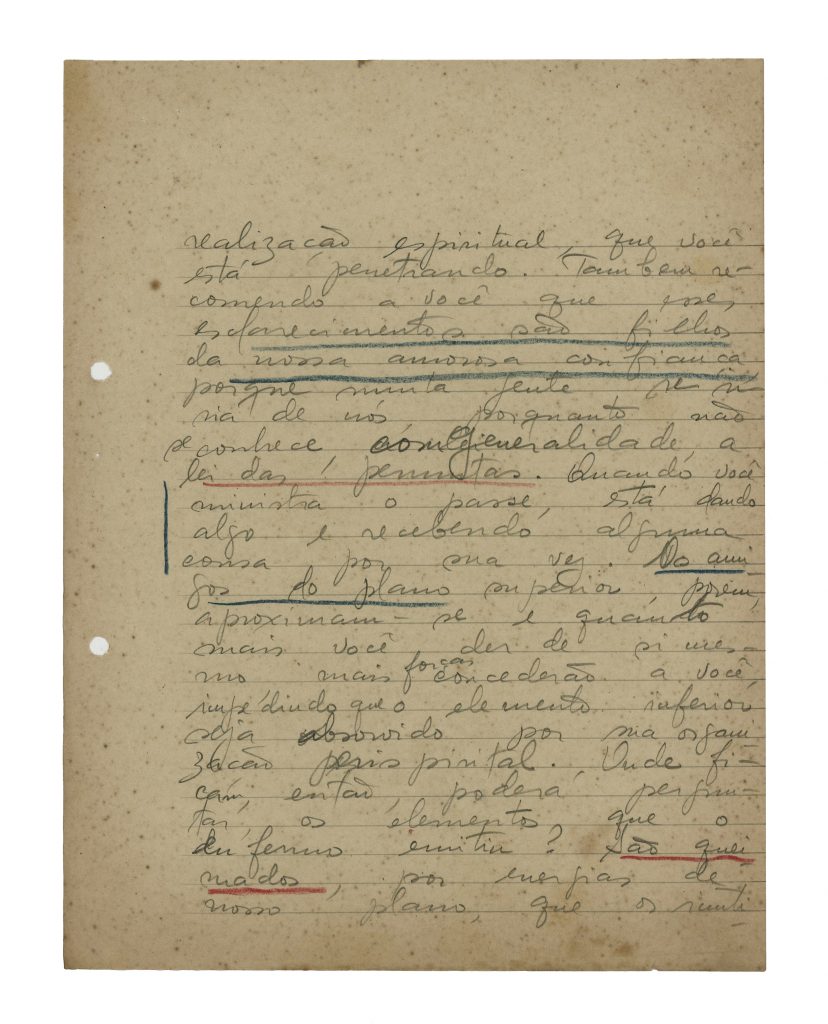 realização espiritual, que você
está penetrando. Tambem re-
comendo a você que esses
esclarecimentos são filhos
da nossa amorosa confiança
porque muita gente
ria de nós porquanto não
se conhece com generalidade, a
lei das permutas. Quando você
ministra o passe, está dando
algo e recebendo alguma
cousa por sua vez. Os ami-
gos do plano superior, porem,
aproximam-se e quanto
mais você der de si mes-
mo mais forças concederão a você,
impedindo que o elemento inferior
seja absorvido por sua organi-
zação perispirital. Onde fi-
cam, então, poderá pergun-
tar, os elementos, que o
enfermo emitiu? São quei
mados, por energias de
nosso plano, que os inuti-